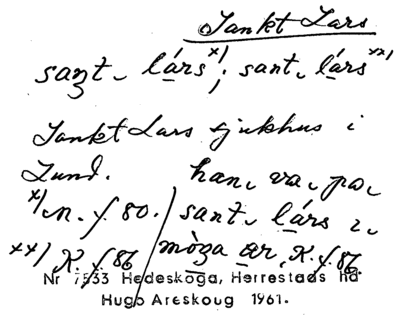 Sankt Lars
sant lárs x); sant lárs xx)
Sankt Lars sjukhus i
Lund. han va pa
x) M. f. 80. / sant lárs i
xx) K. f. 86 / ar. K. f. 86.
Nr 7533 Hedeskoga, Herrestads hd
Hugo Areskoug 1961.